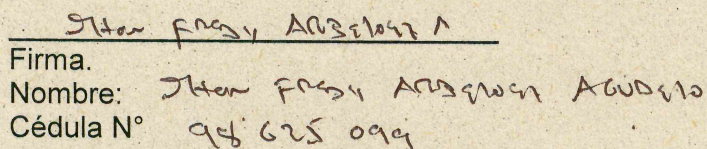 Jhon Fredy Arbelaez A
Firma.
Nombre: Jhon Fredy Arbelaez Agudelo
Cédula N° 98 625 099